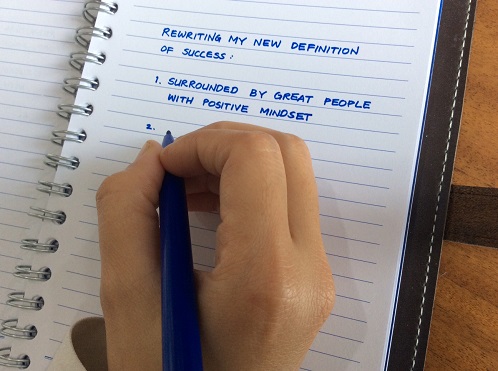 REWRITING MY NEW DEFINITION
OF SUCCESS:
1. SURROUNDED BY GREAT PEOPLE
WITH POSITIVE MINDSET
2.